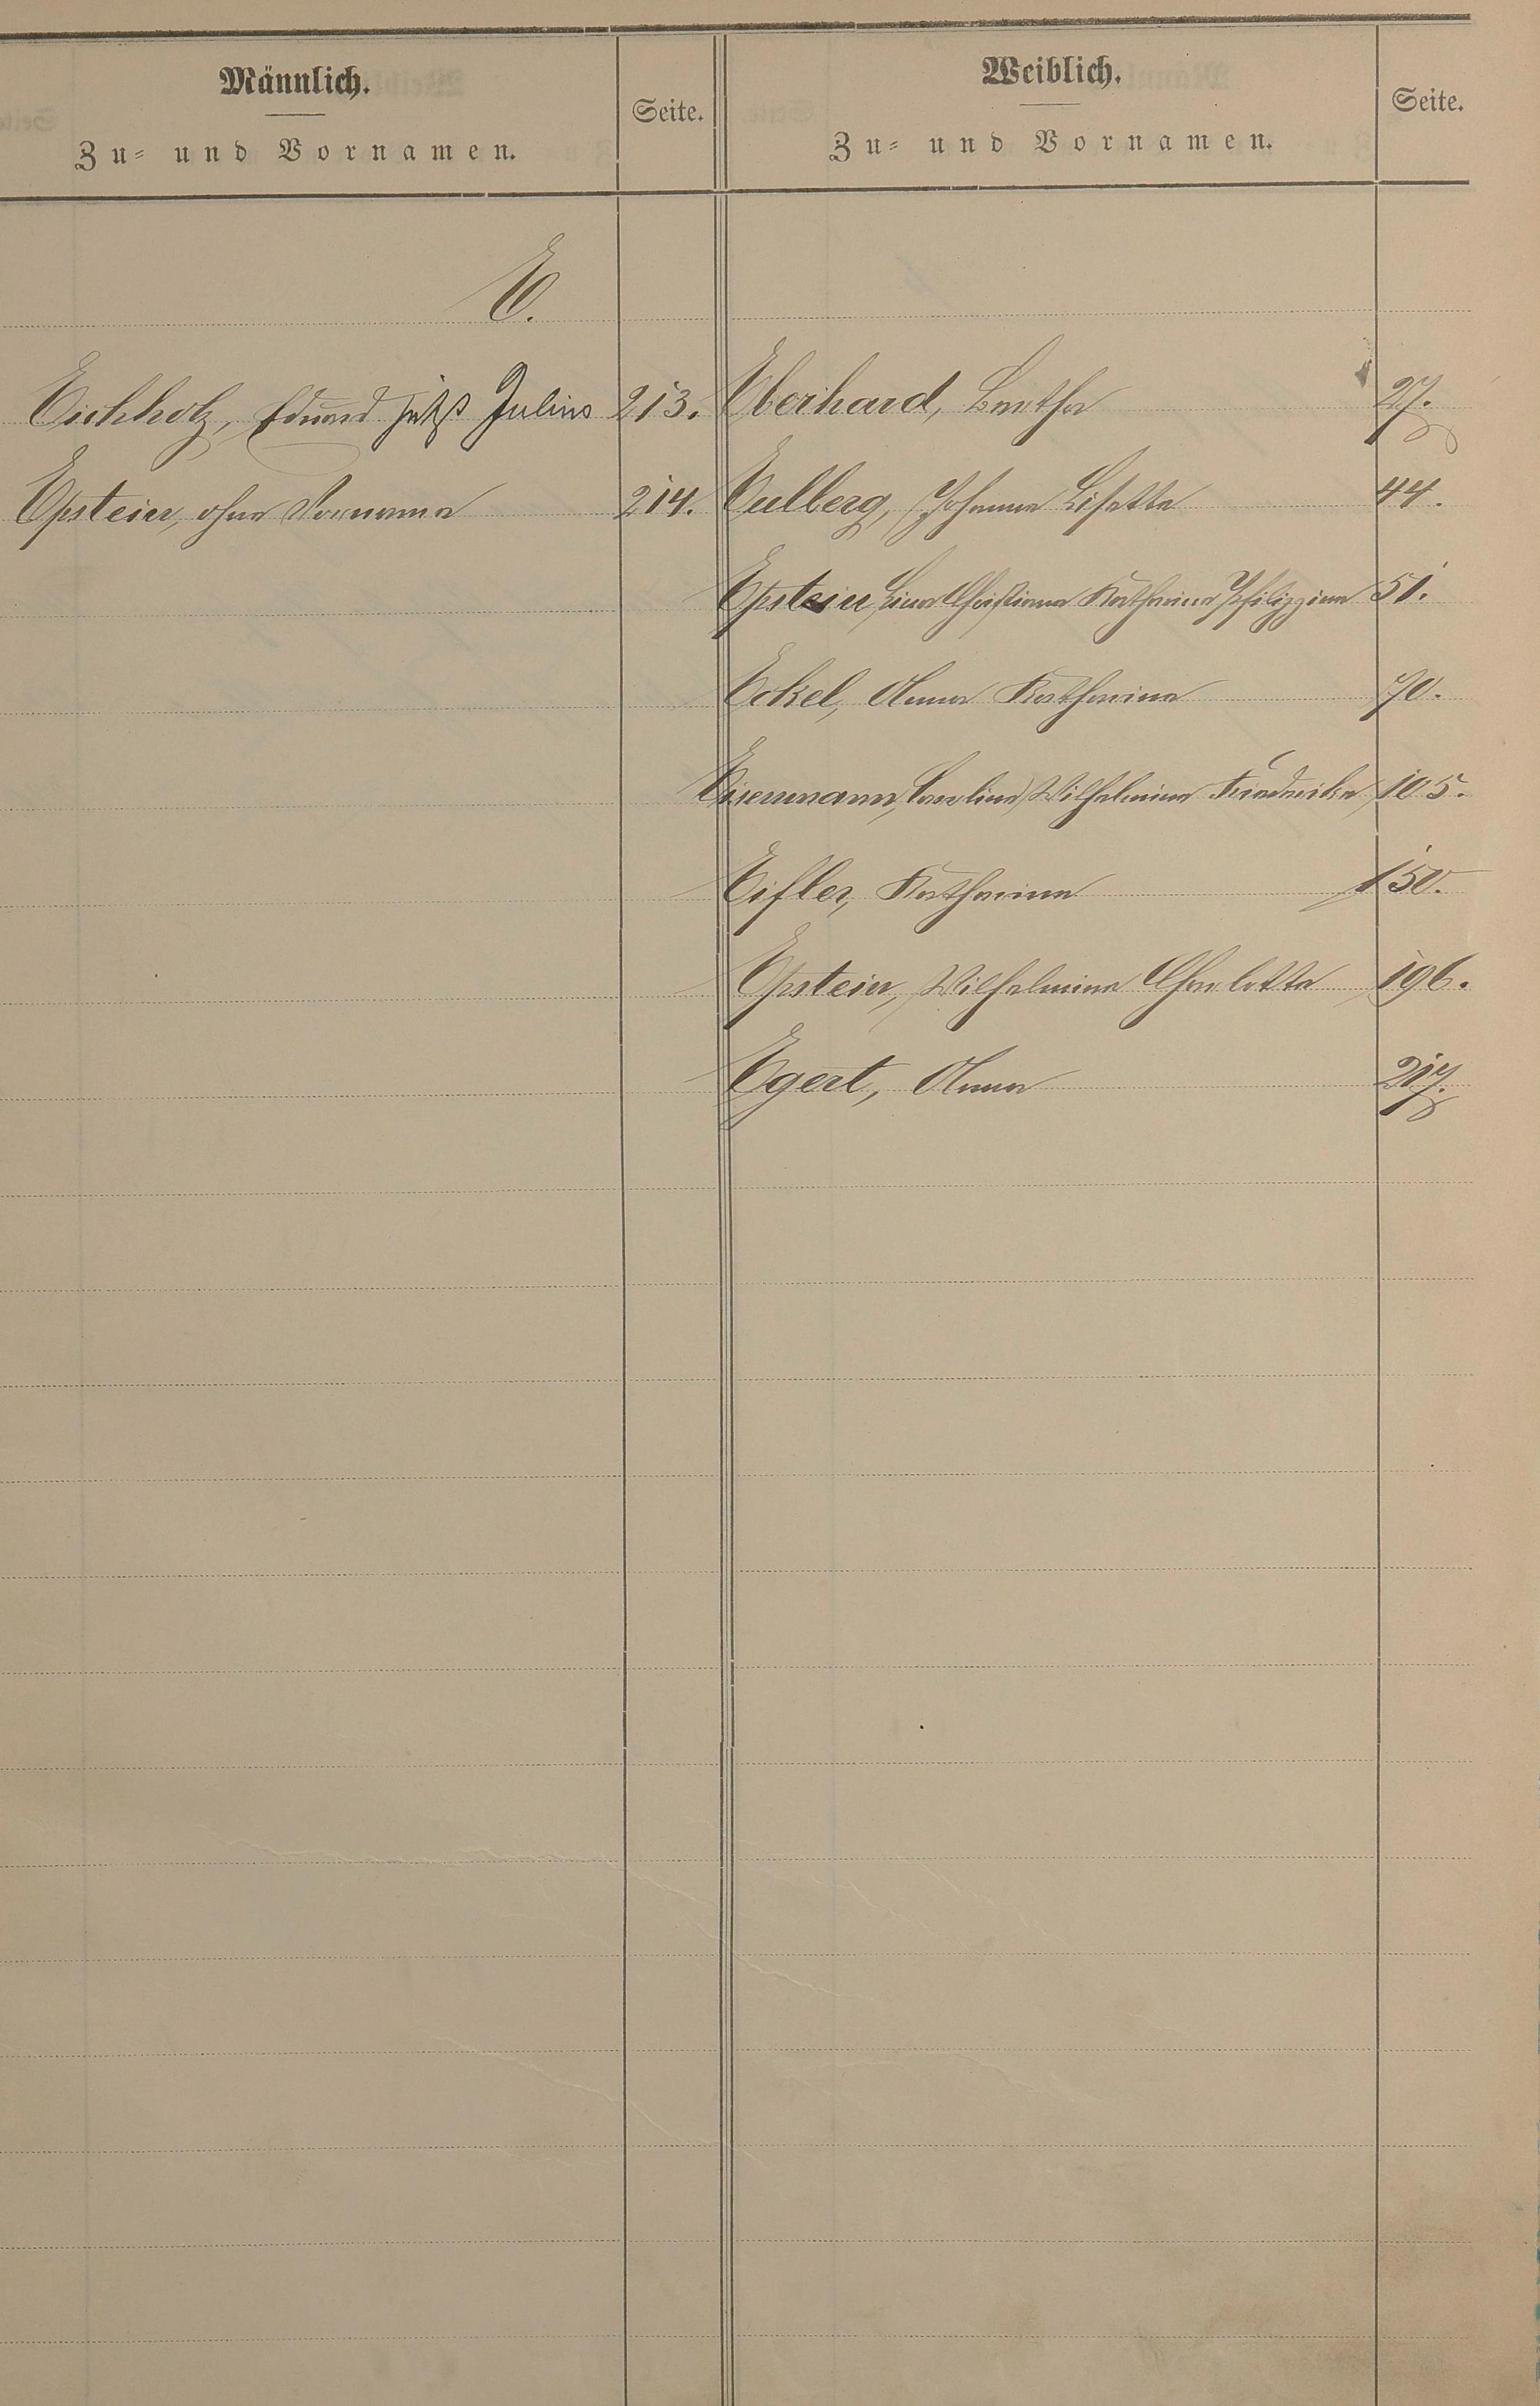 Männlich.
Zu- und Vornamen.
Seite.
Weiblich.
Zu- und Vornamen.
Seite.
E.
Eichholz, Eduard jetzt Julius 213.
Epstein, ohne Vorname 214.
Eberhard, Bertha 27.
Eulberg, Johanna Lisette 44.
Epstein, Lina Christiana Katharina Philippina 51.
Eckel, Anna Katharina 70.
Eisenmann, Carolina Wilhelmina Friederike 105.
Eifler, Katharina 150.
Epstein, Wilhelmina Charlotta 196.
Egert, Anna 217.